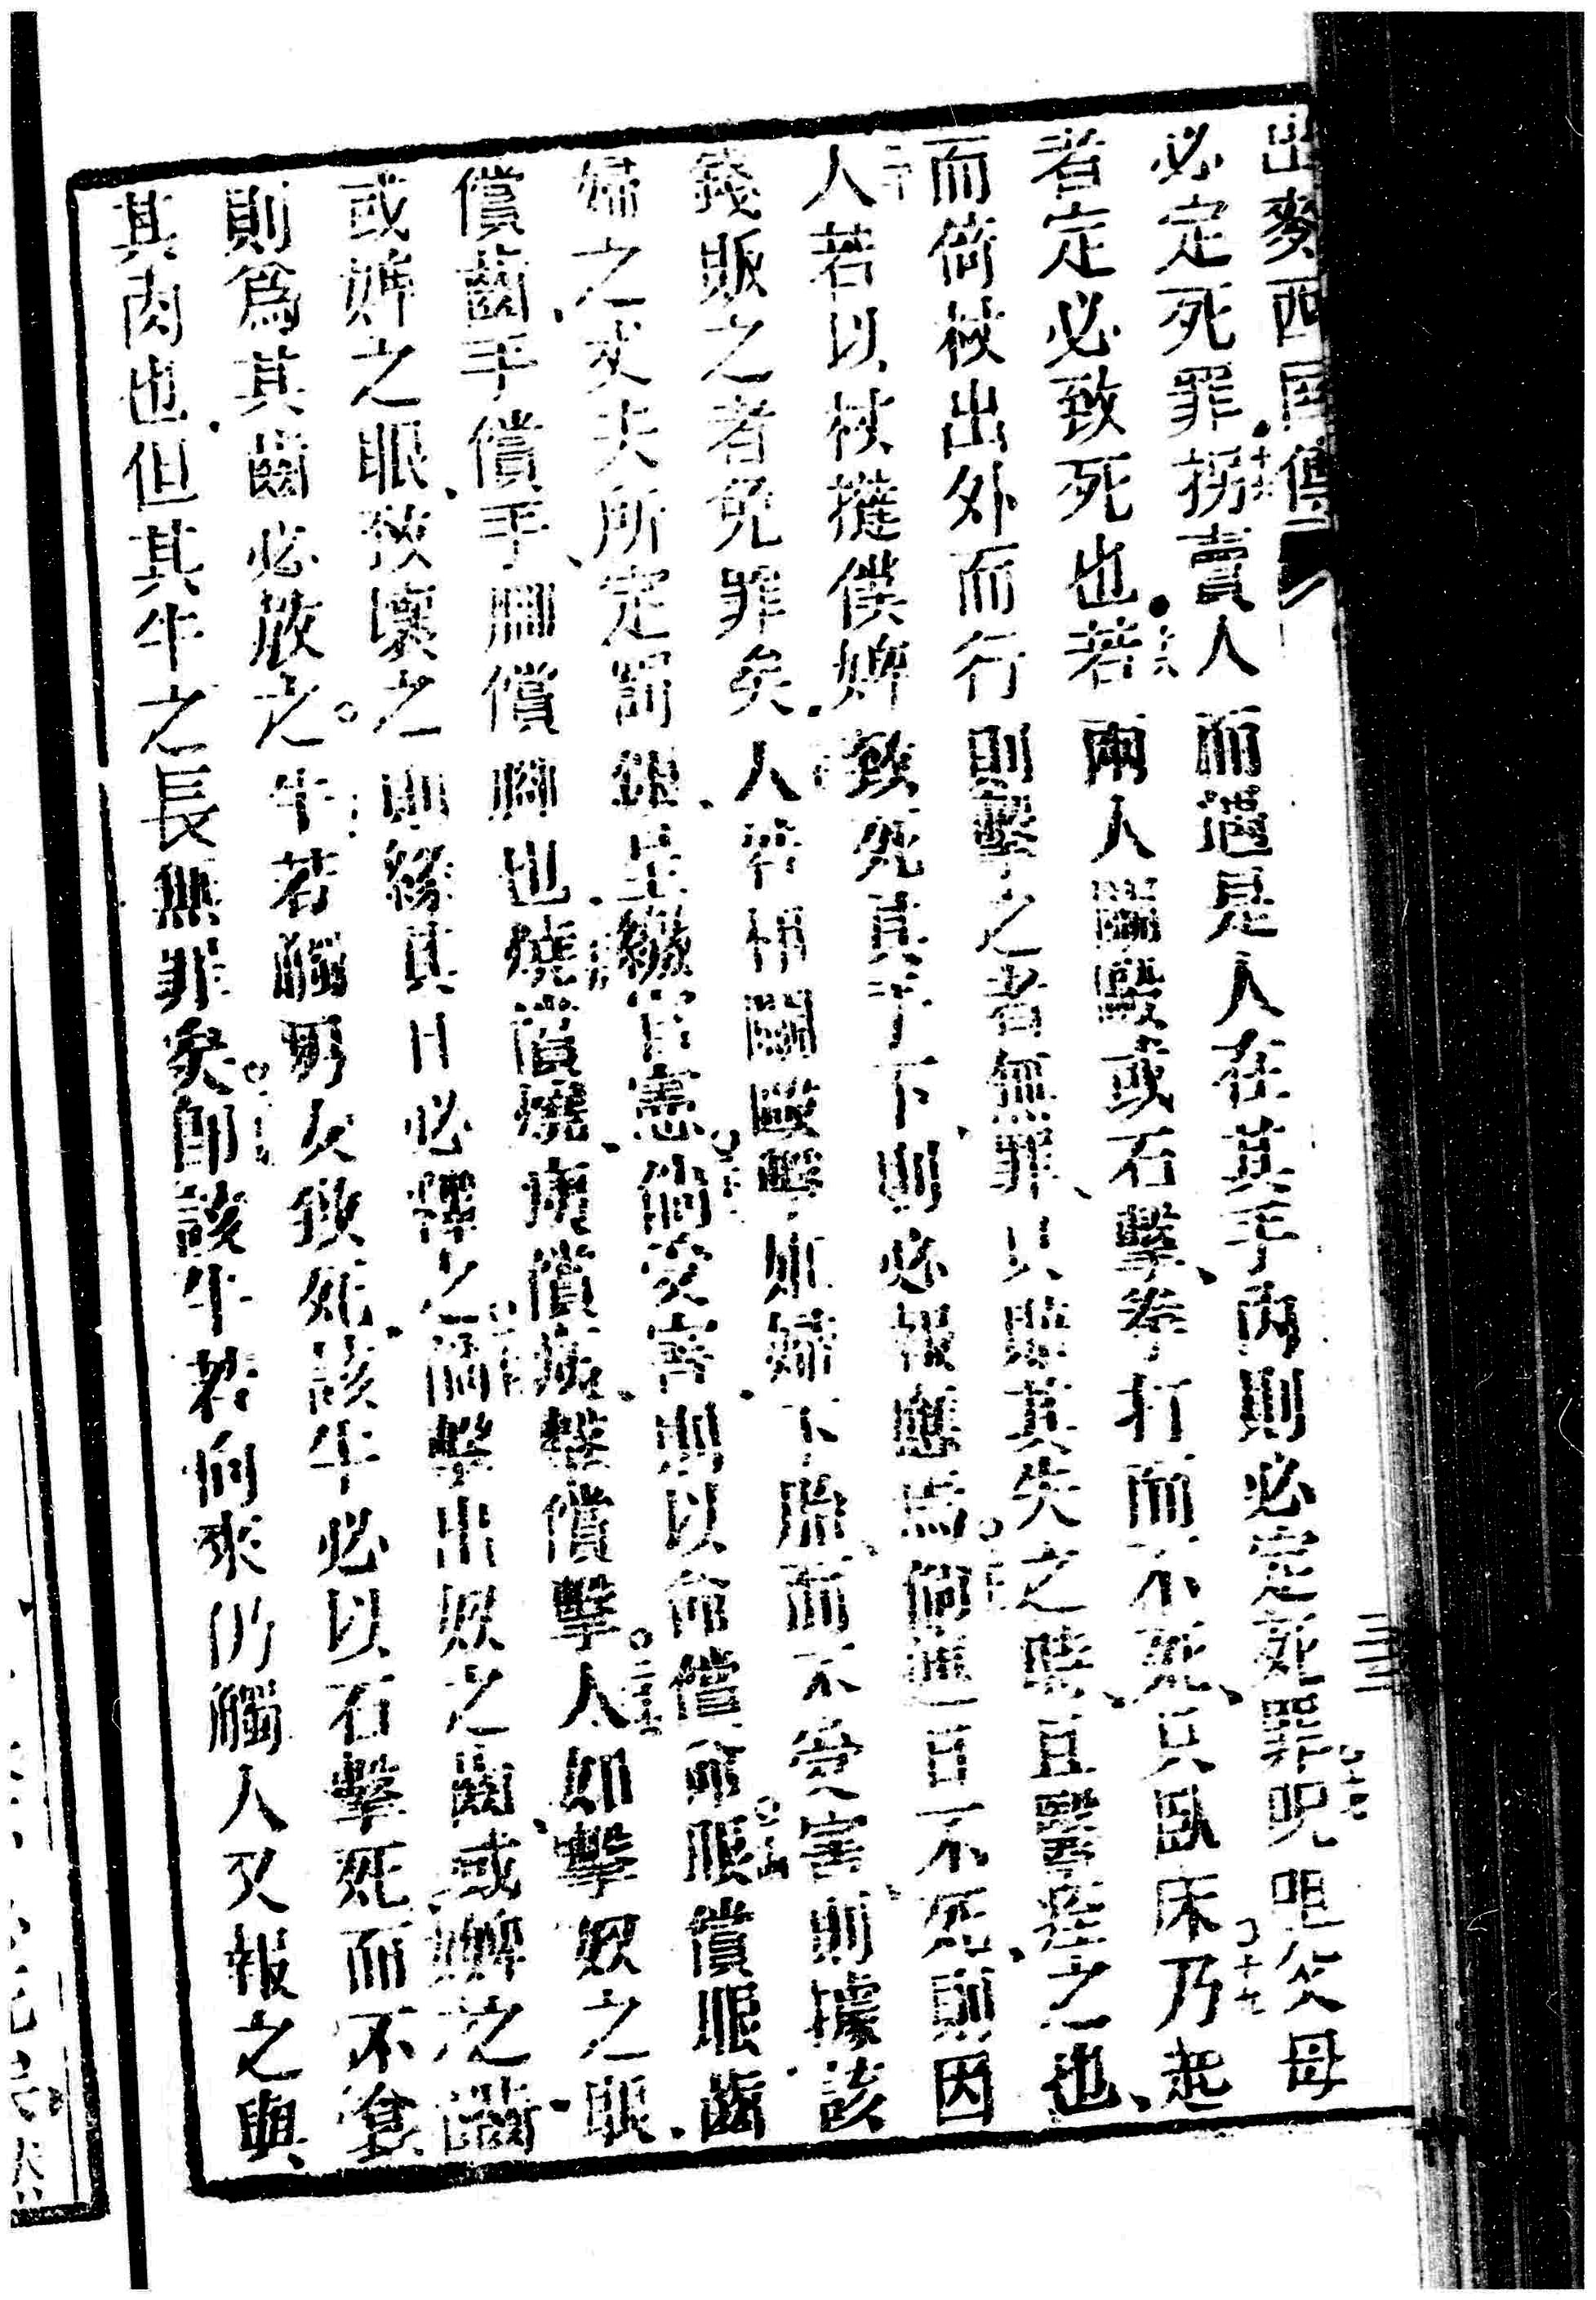 出麥西國傳
三
必定死罪。十六拐賣人而邁是人在其手內則必定死罪。十七呪咀父母
者定必致死也。十八若兩人鬪毆或石擊、拳打而不死、只臥床十九乃起
而倚杖出外而行則擊之者無罪、只賠其失之時、且醫痊之也、
二十人若以杖撻僕婢致死其手下、則必報應焉。倘延一日不死、則因
錢販之者免罪矣。人若相鬪毆擊妊婦下胎、而不受害、則據該
婦之丈夫所定罰銀、呈繳官憲。倘受害、則以命償命。眼償眼、齒
償齒、手償手、脚償脚也、燒償燒、痍償痍、擊償擊。人如擊奴之眼、
或婢之眼、致壞之則緣其目必釋之。倘擊出奴之齒、或婢之齒、
則為其齒必放之。牛若觸男女致死、該牛必以石擊死而不食
其肉也、但其牛之長無罪矣。即該牛若向來仍觸人又報之與